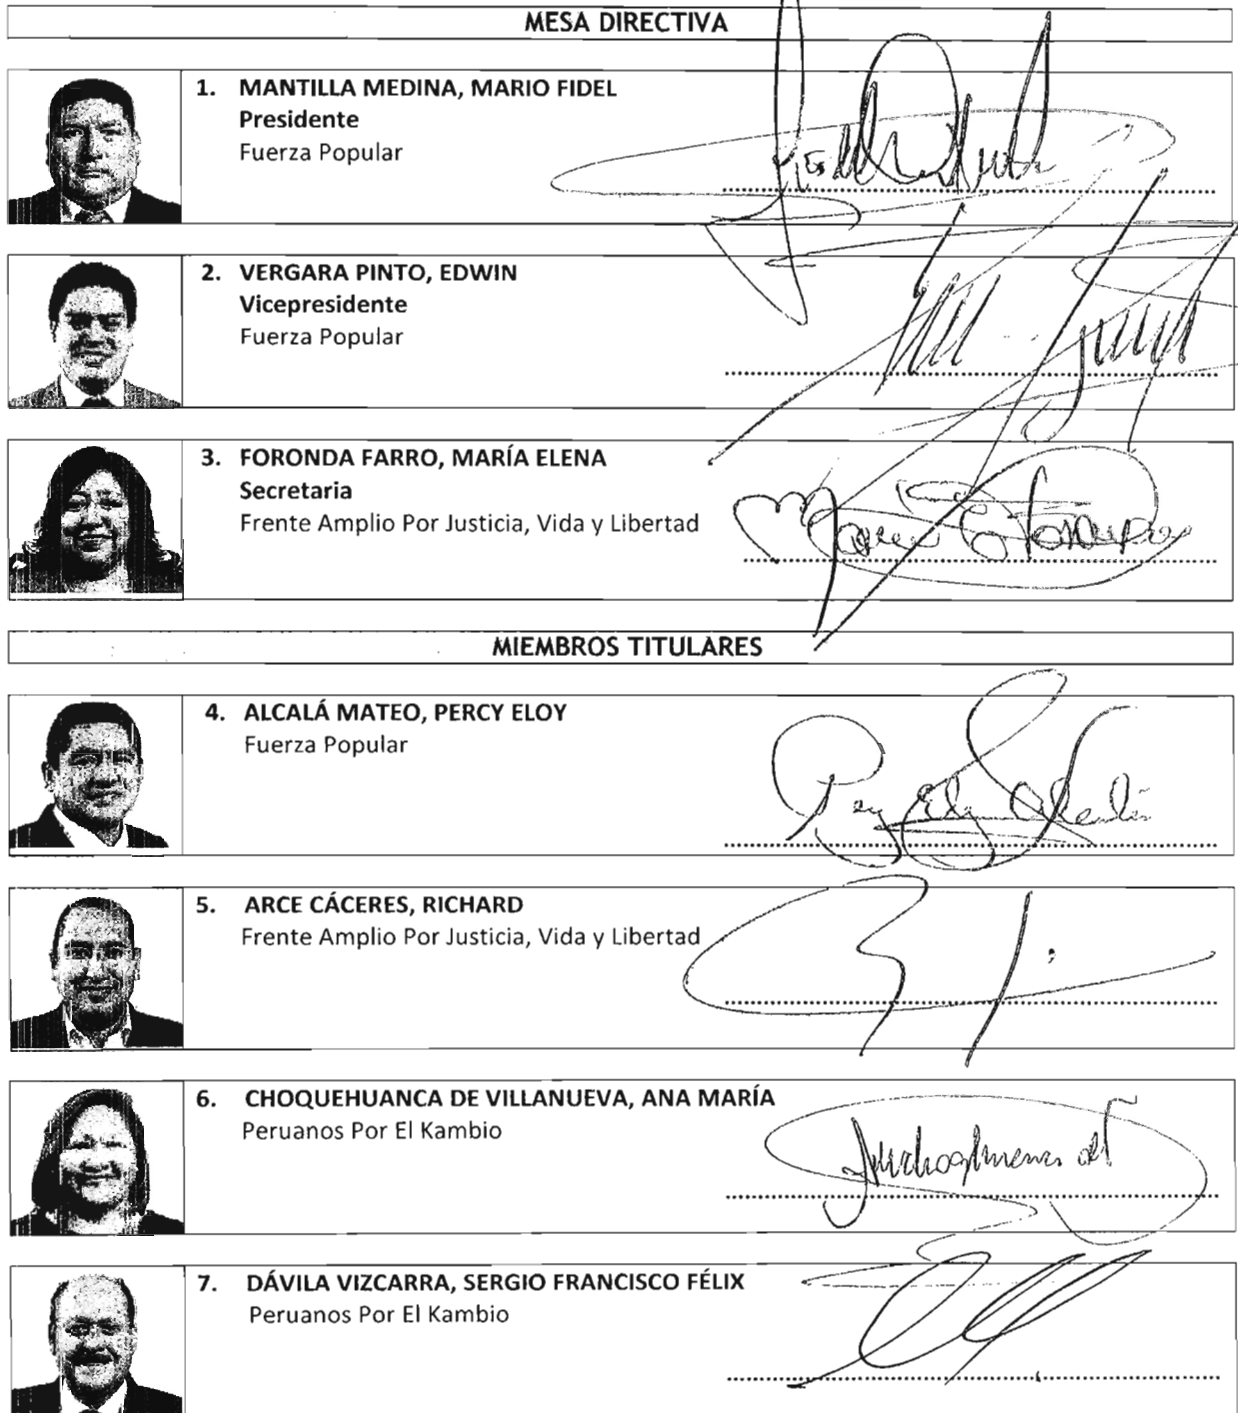 MESA DIRECTIVA
1. MANTILLA MEDINA, MARIO FIDEL
Presidente
Fuerza Popular
2. VERGARA PINTO, EDWIN
Vicepresidente
Fuerza Popular
3. FORONDA FARRO, MARÍA ELENA
Secretaria
Frente Amplio Por Justicia, Vida y Libertad
MIEMBROS TITULARES
4. ALCALÁ MATEO, PERCY ELOY
Fuerza Popular
5. ARCE CÁCERES, RICHARD
Frente Amplio Por Justicia, Vida y Libertad
6. CHOQUEHUANCA DE VILLANUEVA, ANA MARÍA
Peruanos Por El Kambio
7. DÁVILA VIZCARRA, SERGIO FRANCISCO FÉLIX
Peruanos Por El Kambio